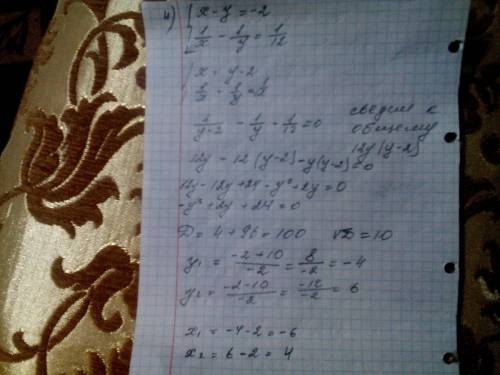 4) { x - y = -2
1/x - 1/y = 1/12
{ x = y - 2
1/x - 1/y = 1/12
1/(y-2) - 1/y - 1/12 = 0 сведём к
общему
12y(y-2)
12y - 12(y-2) - y(y-2) = 0
12y - 12y + 24 - y² + 2y = 0
-y² + 2y + 24 = 0
D = 4 + 96 = 100 √D = 10
y₁ = (-2+10)/-2 = 8/-2 = -4
y₂ = (-2-10)/-2 = -12/-2 = 6
x₁ = -4-2 = -6
x₂ = 6-2 = 4